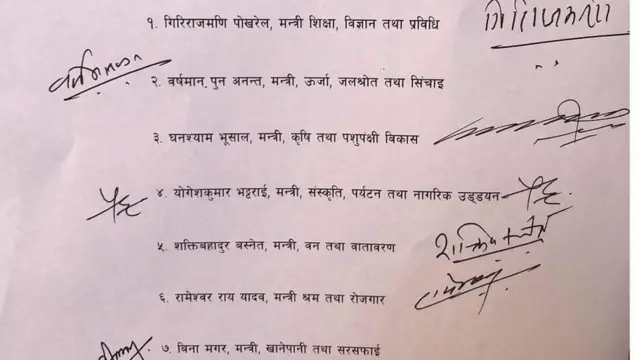 १. गिरिराजमणि पोखरेल, मन्त्री शिक्षा, विज्ञान तथा प्रविधि
२. वर्षमान पुन अनन्त, मन्त्री, ऊर्जा, जलश्रोत तथा सिंचाइ
३. घनश्याम भूसाल, मन्त्री, कृषि तथा पशुपंक्षी विकास
४. योगेशकुमार भट्टराई, मन्त्री, संस्कृति, पर्यटन तथा नागरिक उड्डयन
५. शक्तिबहादुर बस्नेत, मन्त्री, वन तथा वातावरण
६. रामेश्वर राय यादव, मन्त्री श्रम तथा रोजगार
७. बिना मगर, मन्त्री, खानेपानी तथा सरसफाई